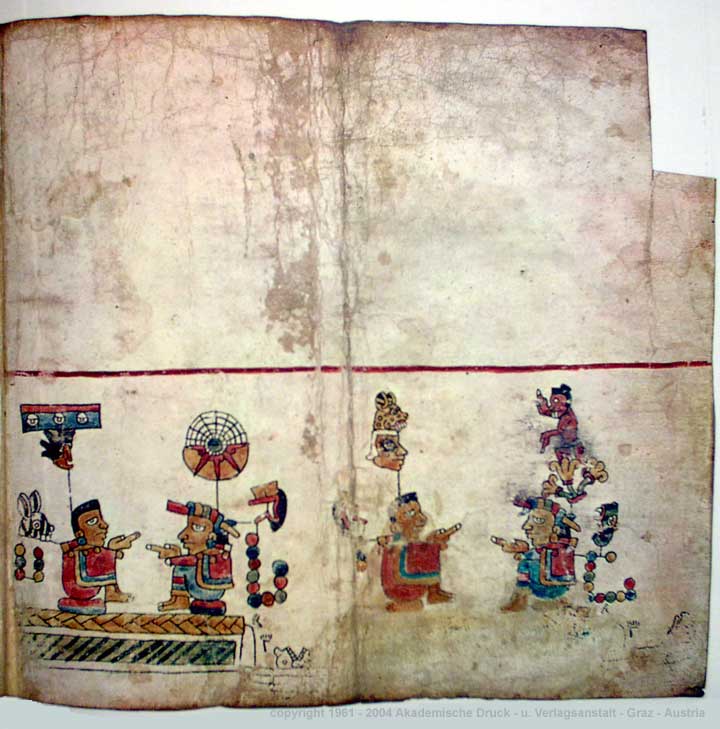 copyright 1961 - 2004 Akademische Druck - u. Verlagsanstalt - Graz - Austria